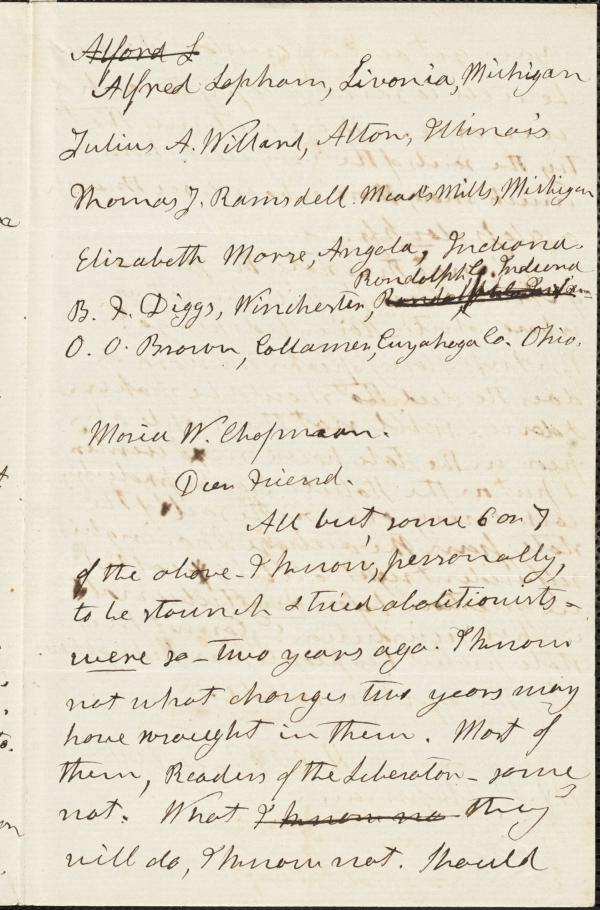 Alford L
Alfred Lapham, Livonia, Michigan
Julius A. Willard, Alton, Illinois
Thomas J. Ramsdell. Mead's Mills, Michigan
Elizabeth Morse, Angola, Indiana.
Randolph Co. Indiana
B. F. Diggs, Winchester, Randolph Co. Indiana
O. O. Brown, Collamer, Cuyahoga Co. Ohio.
Maria W. Chapman.
Dear Friend.
All but some 6 or 7
of the above - I know, personally,
to be staunch & tried abolitionists -
were so - two years ago. I know
not what changes two years may
have wrought in them. Most of
them, Readers of the Liberator - some
not. What I know no they
will do, I know not. Should